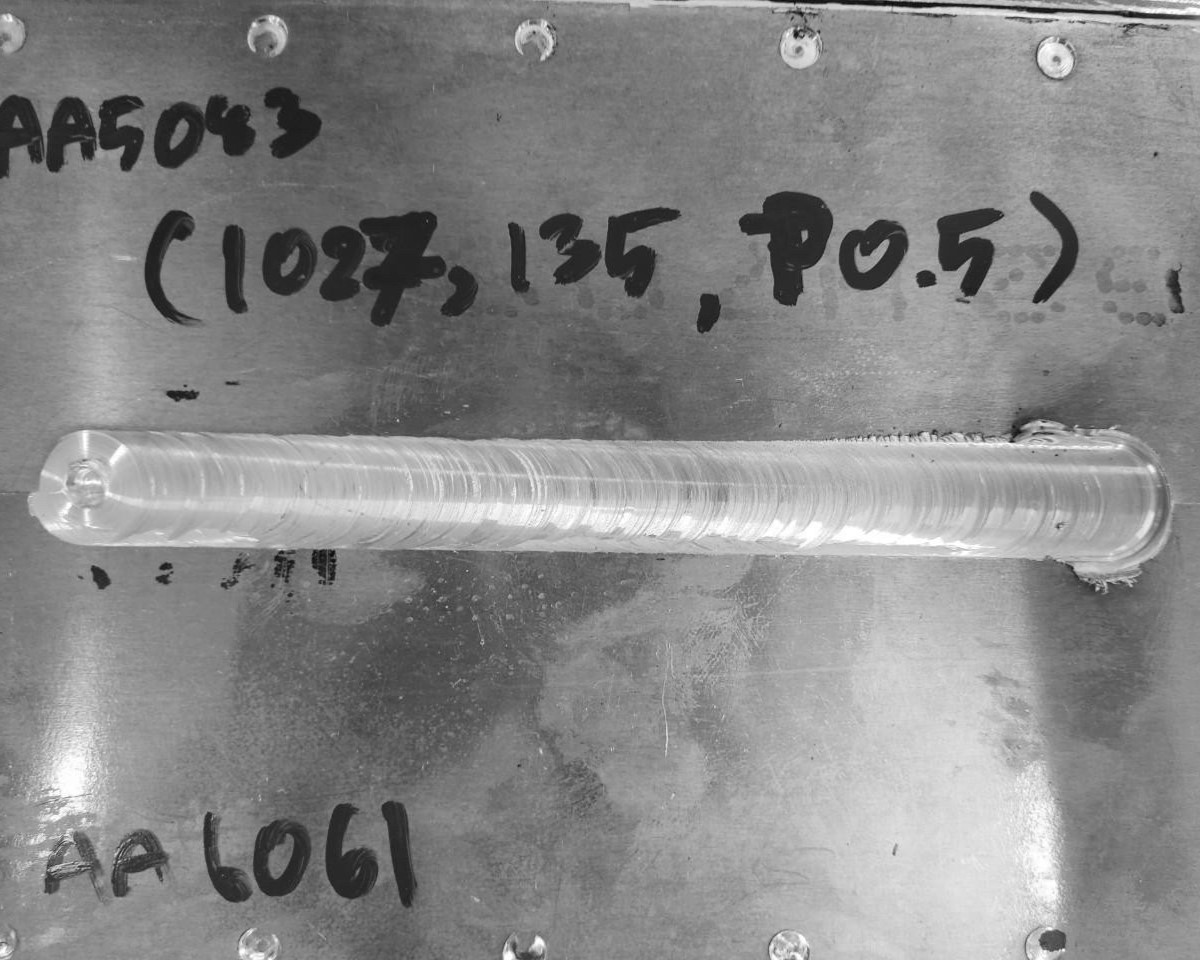 AA5083
(1027, 135, P0.5)
AA 6061